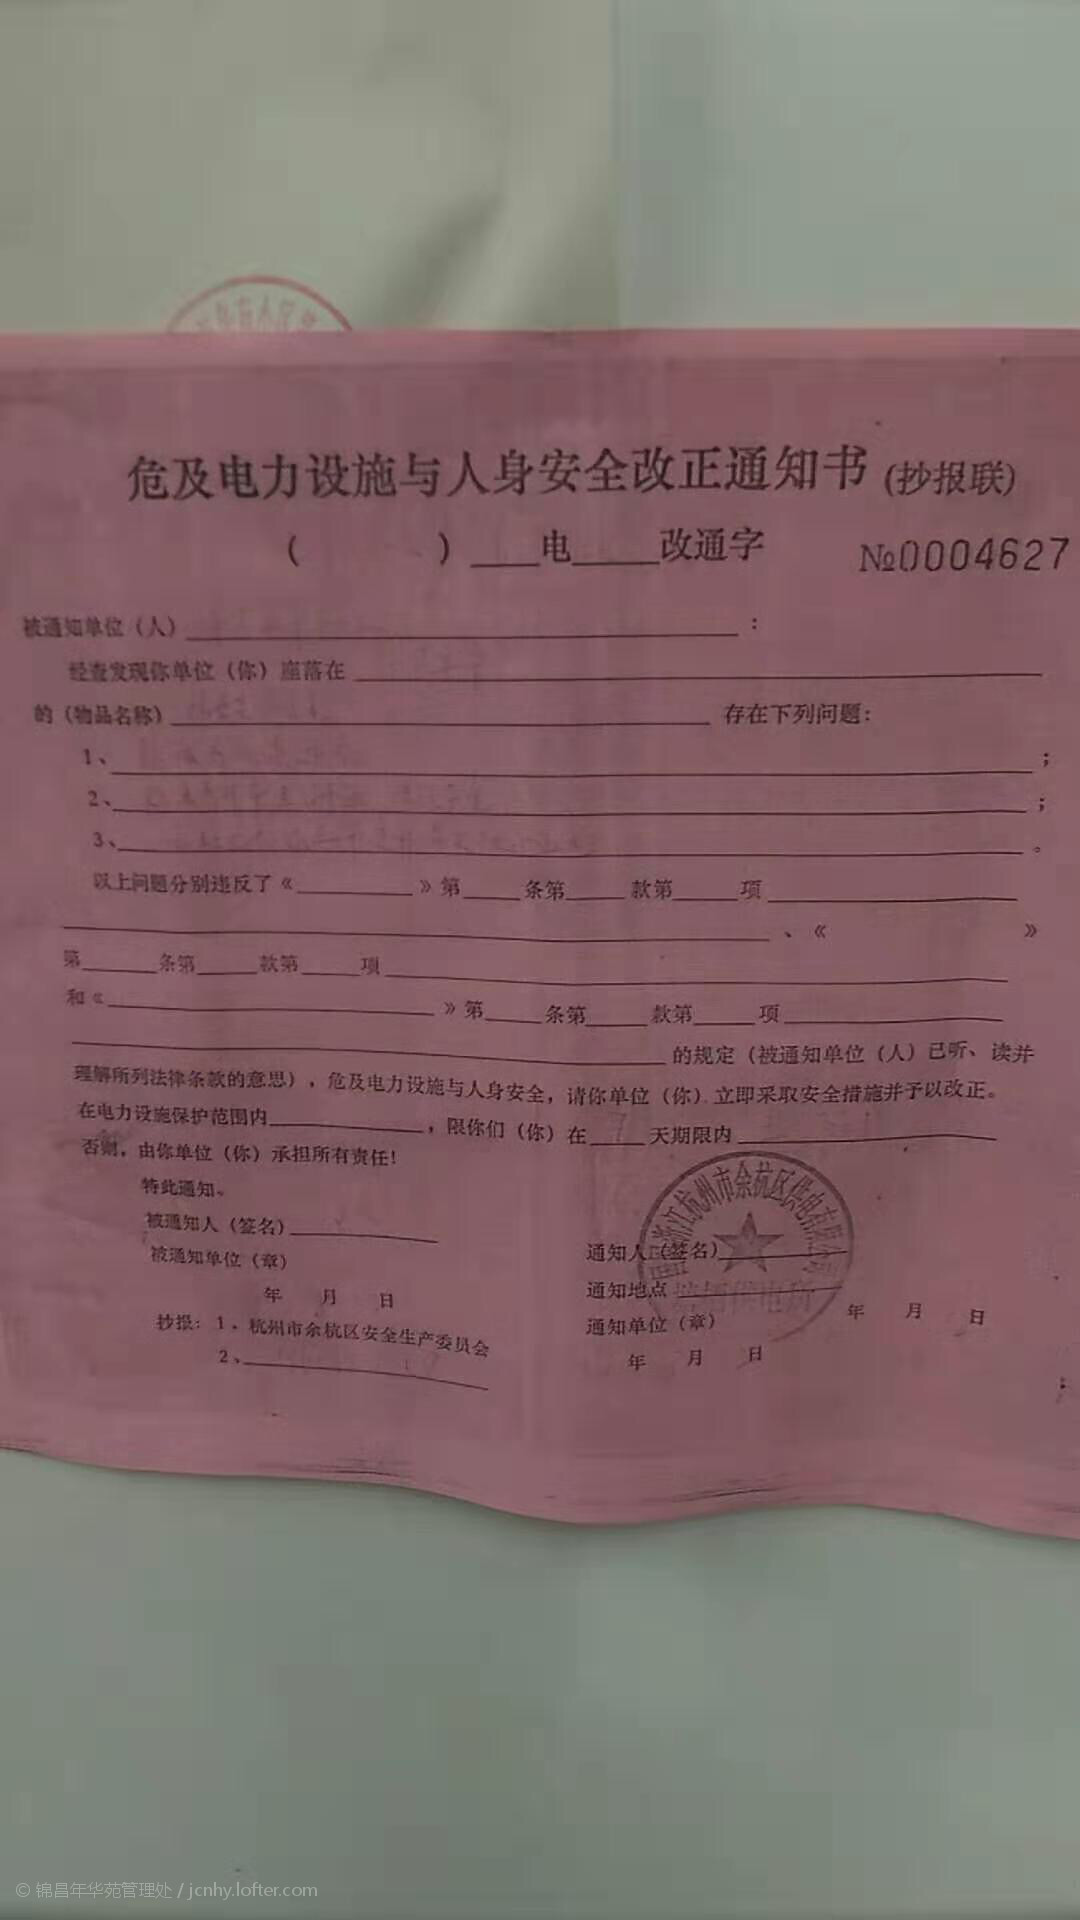 危及电力设施与人身安全改正通知书(抄报联)
( ) ____电____改通字 №0004627
被通知单位(人)________:
经查发现你单位(你)座落在________
的(物品名称)________存在下列问题:
1、________;
2、________;
3、________。
以上问题分别违反了《____》第____条第____款第____项____
________、《 》
第____条第____款第____项________
和《________》第____条第____款第____项________
________的规定(被通知单位(人)已听、读并
理解所列法律条款的意思),危及电力设施与人身安全,请你单位(你)立即采取安全措施并予以改正。
在电力设施保护范围内________,限你们(你)在____天期限内________
否则,由你单位(你)承担所有责任!
特此通知。
被通知人(签名)________
被通知单位(章)
年 月 日
抄报:1、杭州市余杭区安全生产委员会
2、________
通知人(签名)________
通知地点________
年 月 日
通知单位(章)
年 月 日
;
浙江杭州市余杭区供电有限公司
供电所
© 锦昌年华苑管理处 / jcnhy.lofter.com